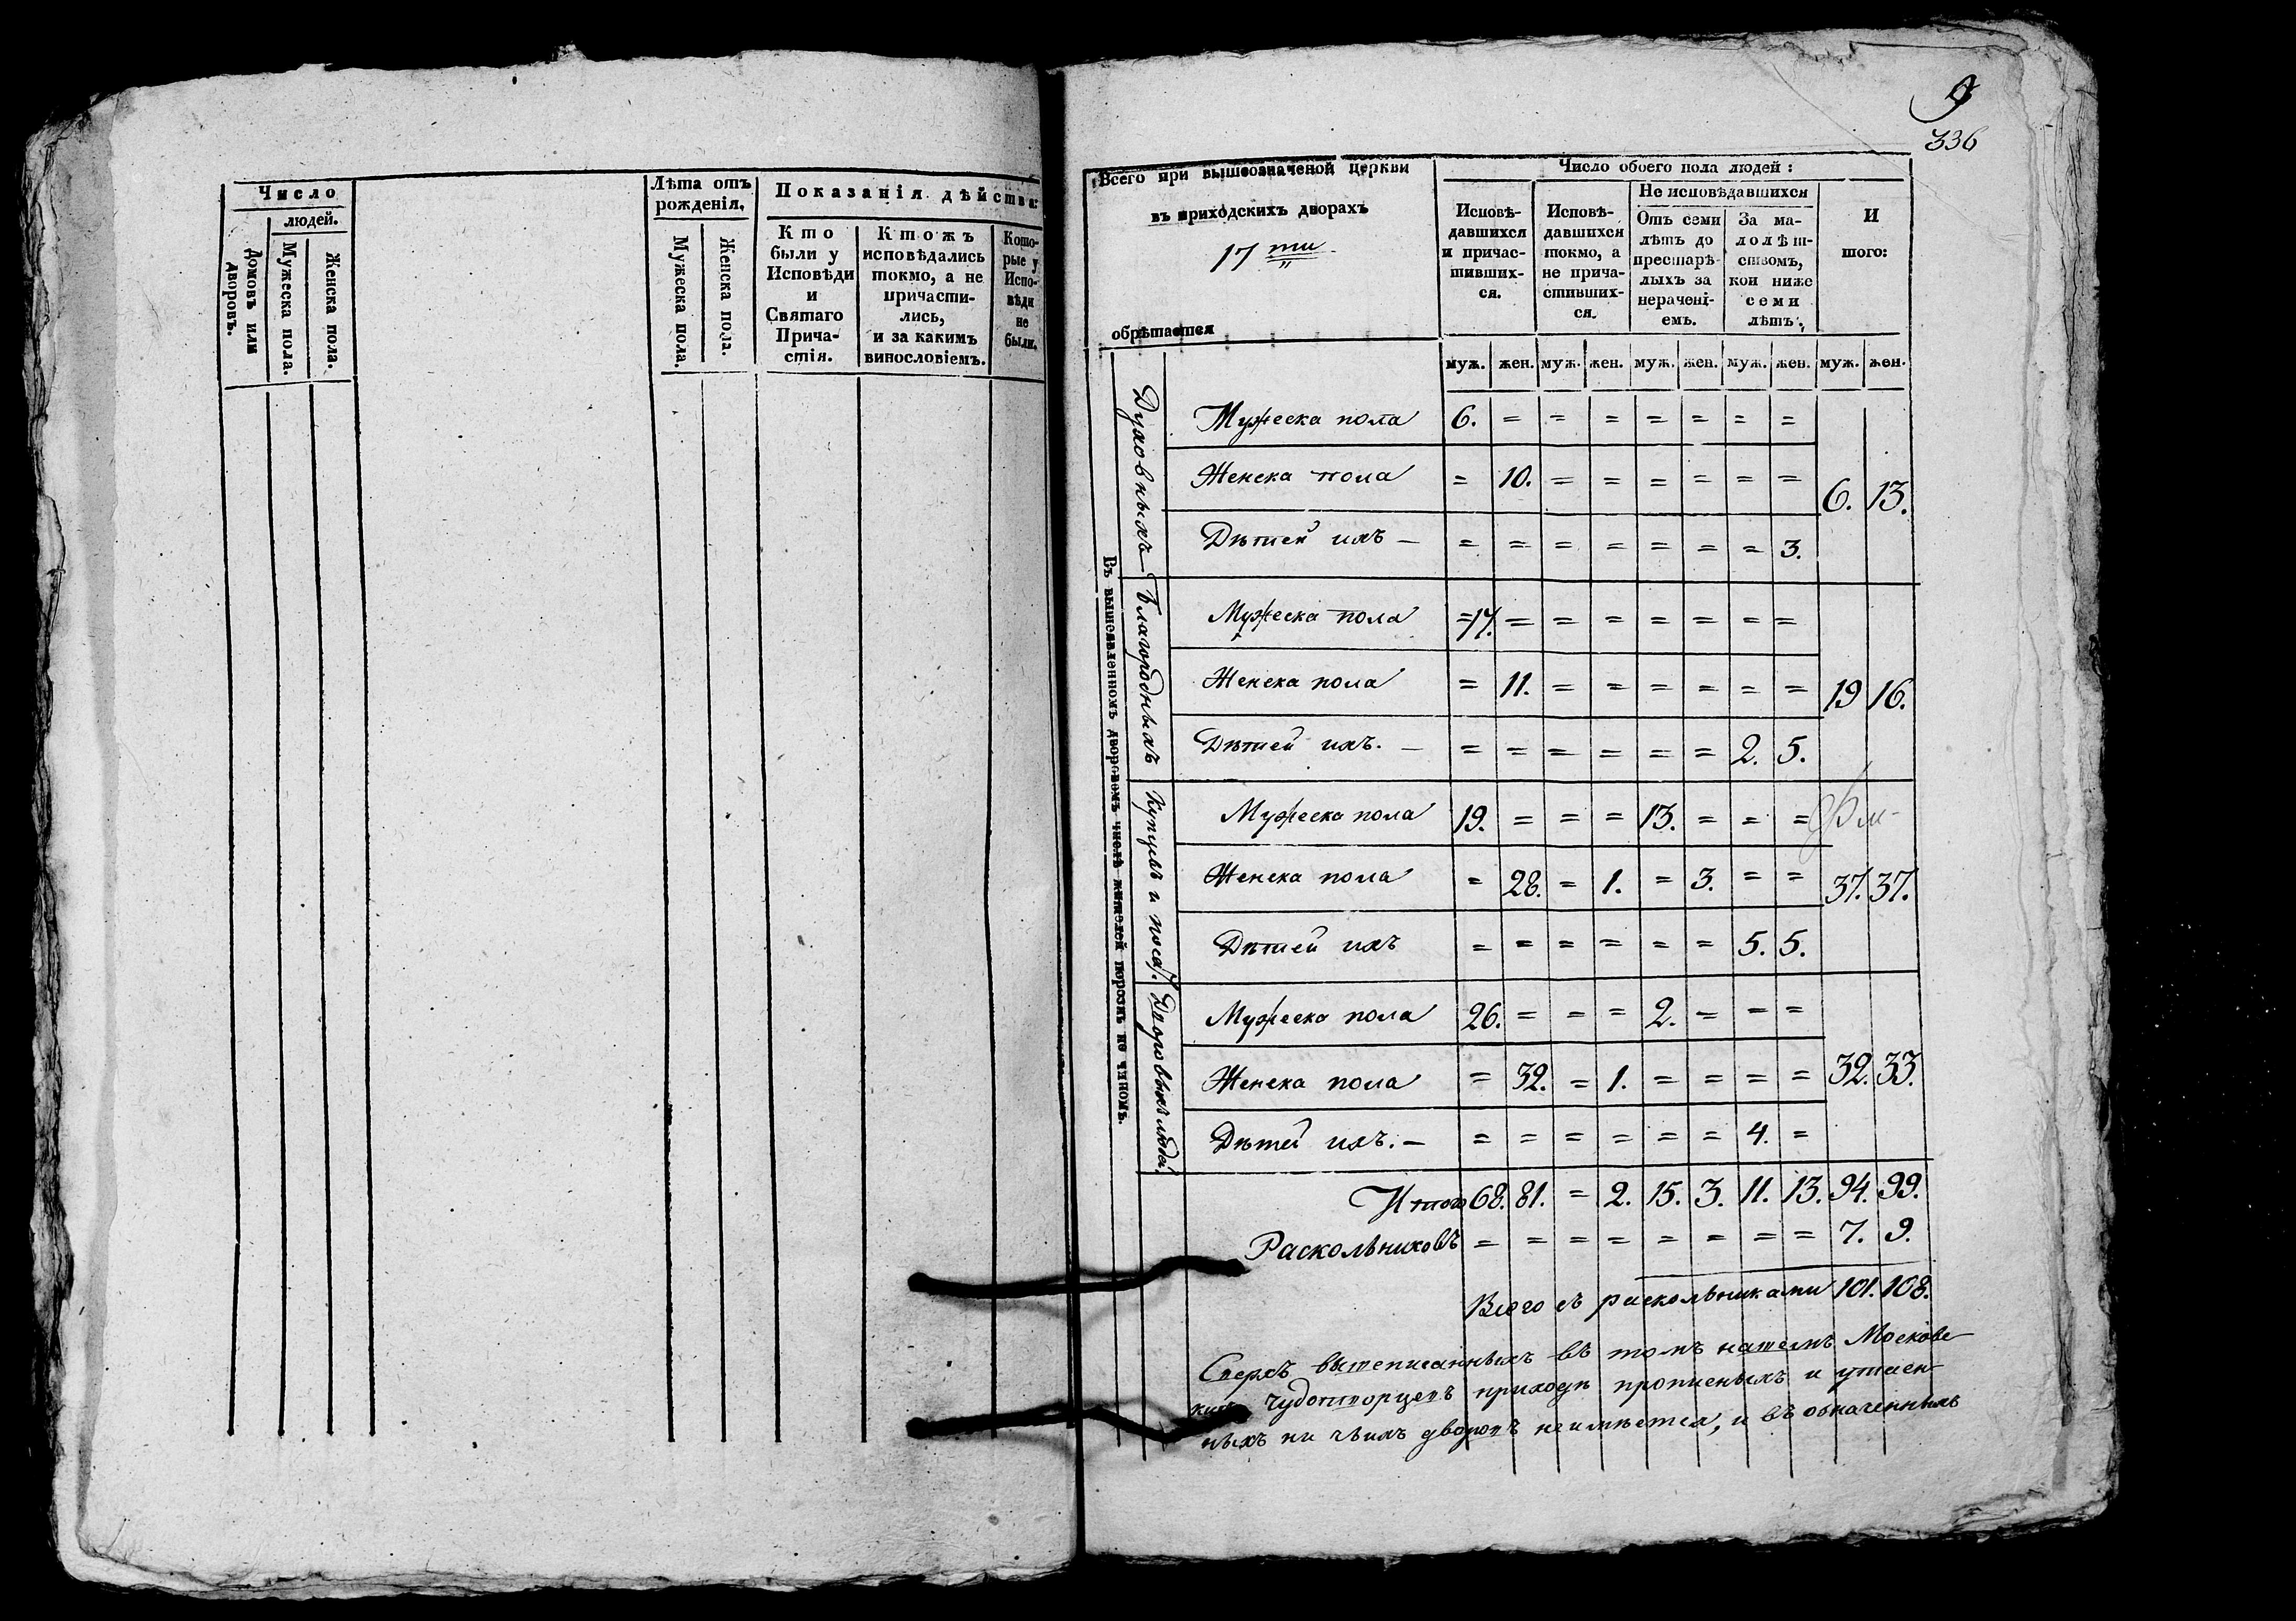 Число
людей.
Домовъ или дворовъ.
Мужеска пола.
Женска пола.
Лѣта отъ рожденія.
Мужеска пола.
Женска пола.
Показанія дѣйства:
Кто были у Исповѣди и Святаго Прича-стія.
Ктожъ исповѣдались токмо, а не причасти-лись, и за какимъ винословіемъ.
Кото-рые у Испо-вѣди не были.
9
336
Всего при вышеозначеной церкви
въ приходскихъ дворахъ
17 ти
обрѣтается
Число обоего пола людей:
Исповѣ-давшихся и причас-тивших-ся.
Исповѣ-давшихся токмо, а не прича-стивших-ся.
Не исповѣдавшихся
Отъ семи лѣтъ до престарѣ-лыхъ за нерачені-емъ.
За ма-лолѣт-ствомъ, кои ниже семи лѣтъ.
И того:
муж. жен. муж. жен. муж. жен. муж. жен. муж. жен.
Въ вышеявленномъ дворовомъ числѣ жителей порознь по чиномъ.
Духовныхъ
Мужеска пола 6. = = = = = = =
Женска пола = 10. = = = = = = 6. 13.
Дѣтей ихъ — = = = = = = = 3.
Благородныхъ
Мужеска пола =17. = = = = = = =
Женска пола = 11. = = = = = = 19 16.
Дѣтей ихъ. — = = = = = = 2. 5.
Купцовъ и посад.
Мужеска пола 19. = = = 13. = = =
Женска пола = 28. = 1. = 3. = = 37. 37.
Дѣтей ихъ = = = = = = 5. 5.
Дворовыхъ людей
Мужеска пола 26. = = = 2. = = =
Женска пола = 32. = 1. = = = = 32. 33.
Дѣтей ихъ. — = = = = = = 4. =
Итого 68. 81. = 2. 15. 3. 11. 13. 94. 99.
Раскольниковъ = = = = = = = = 7. 9.
Всего съ раскольниками 101. 108.
Сверхъ вышеписанныхъ въ томъ нашемъ Московс-
кихъ Чудотворцевъ приходѣ прописныхъ и утаен-
ныхъ ни чьихъ дворовъ неимѣется, и въ означенныхъ